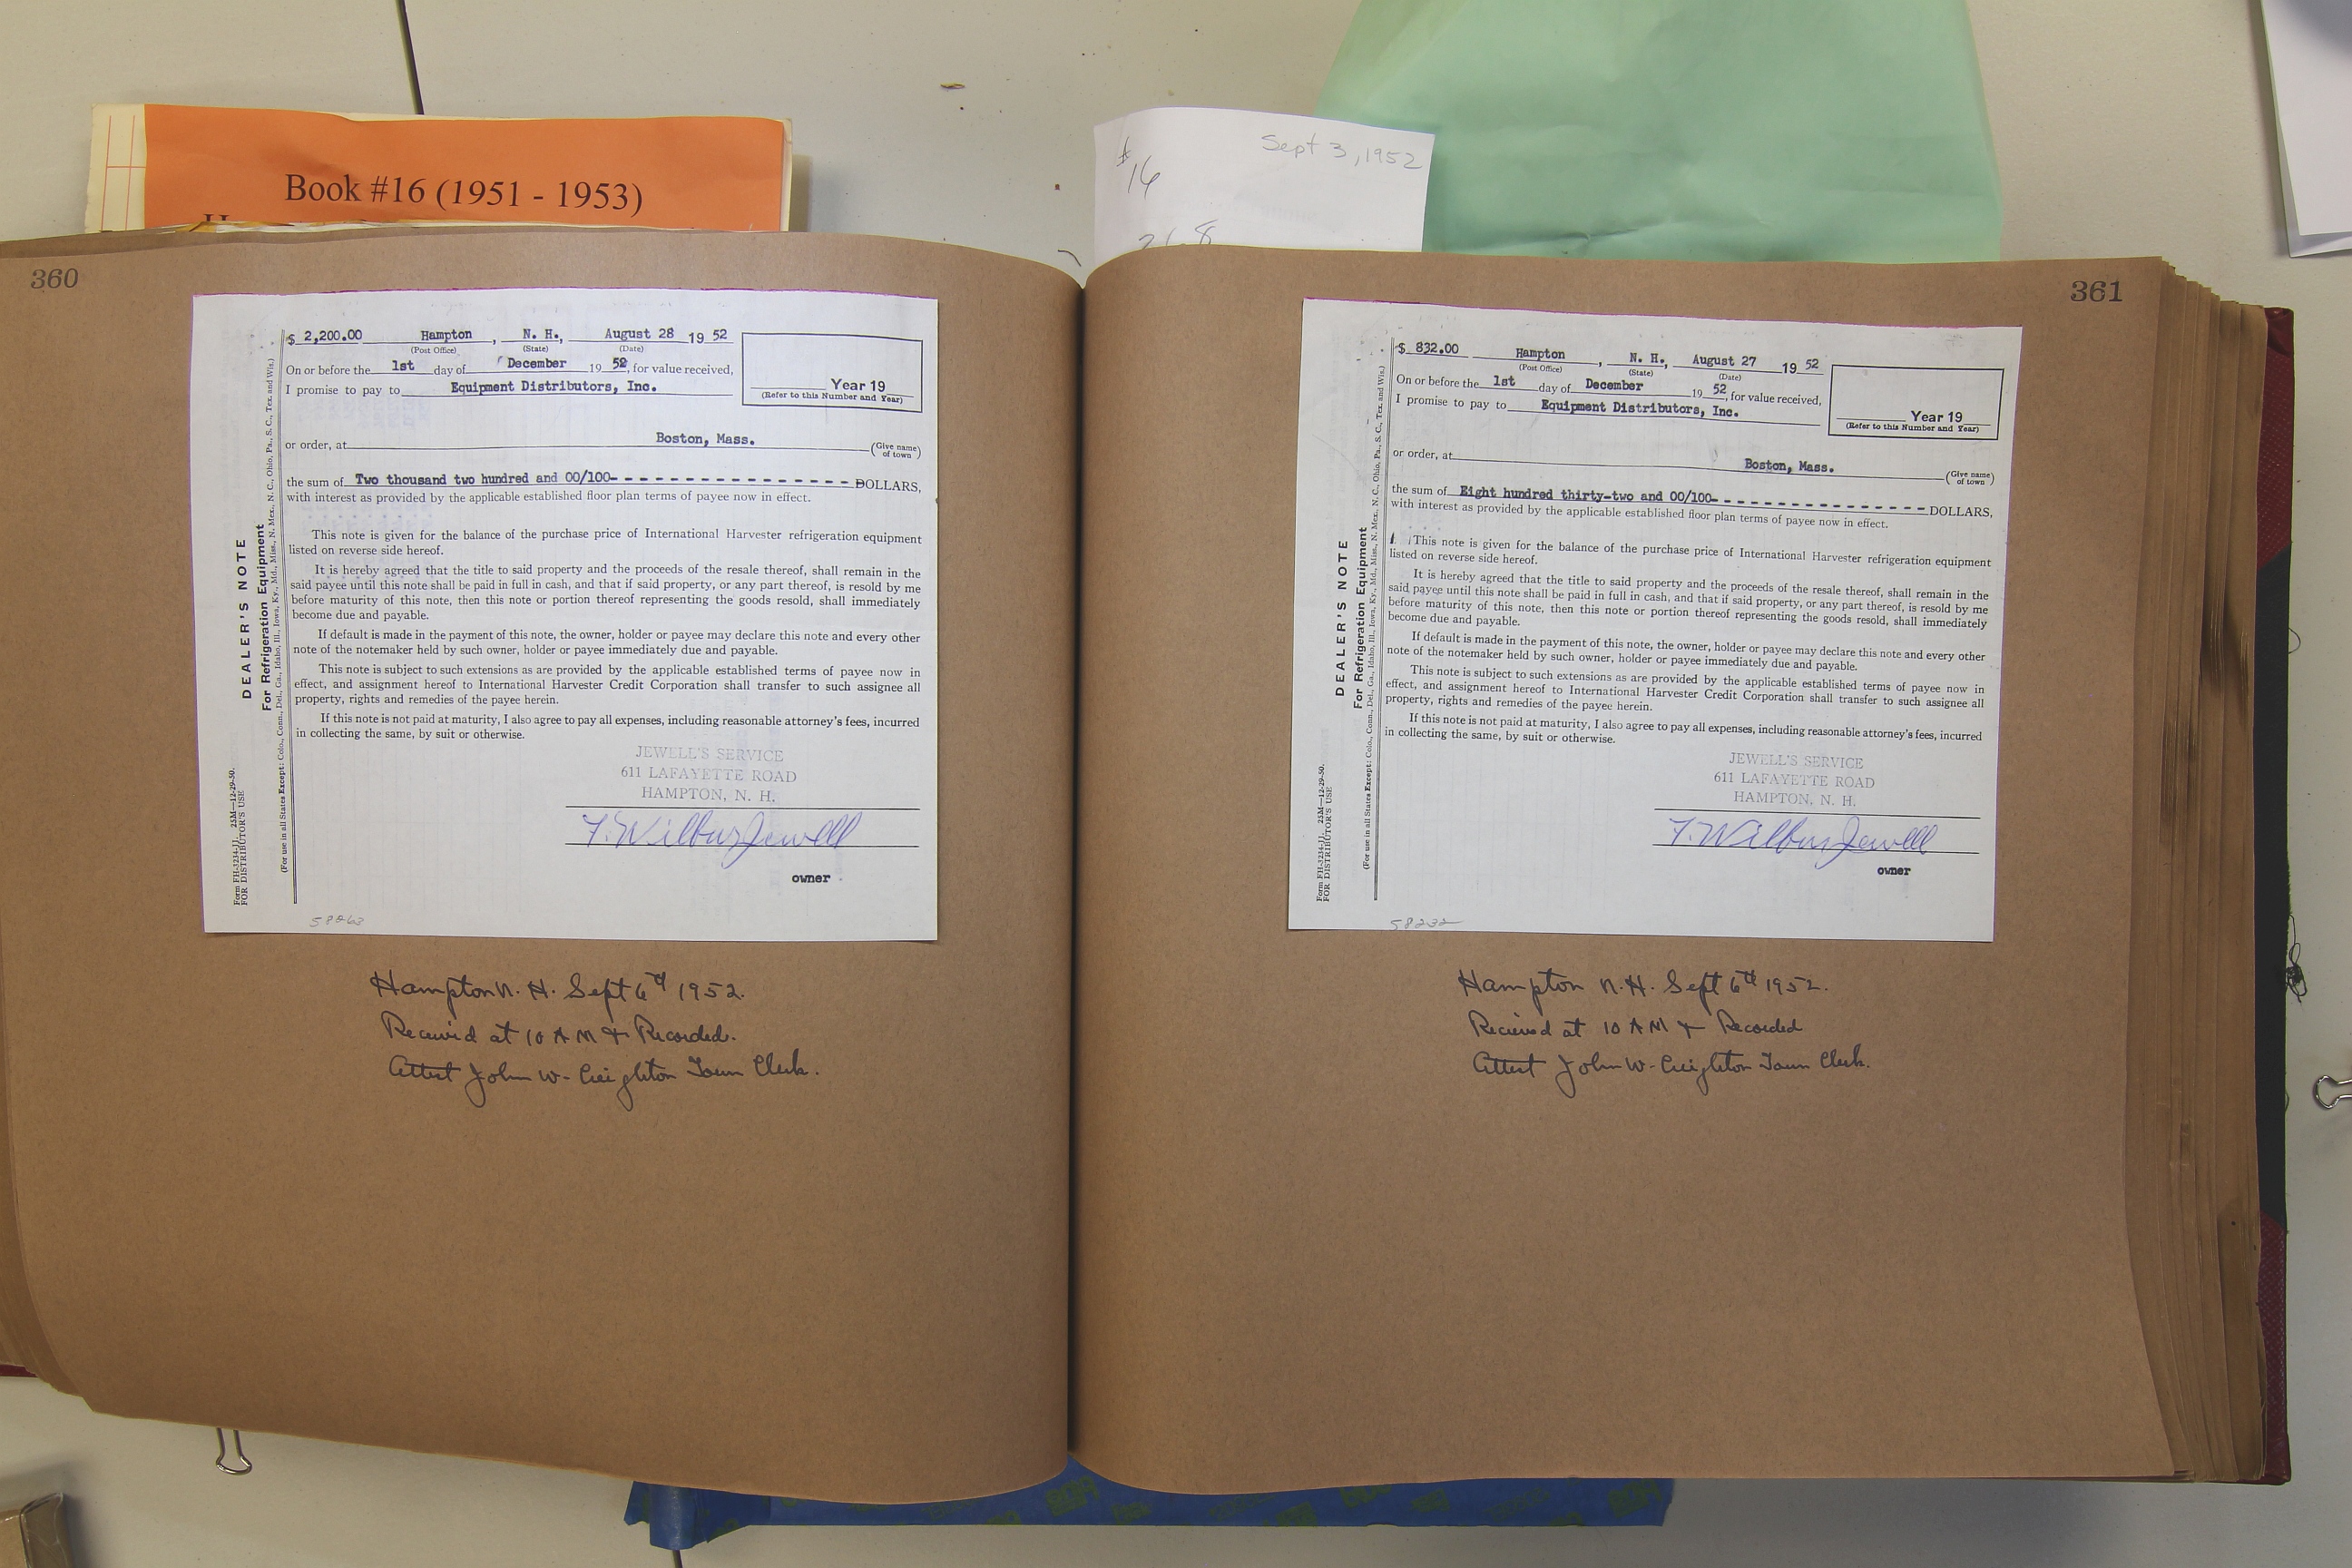 Book #16 (1951 - 1953)
Sept 3, 1952
#16
268
360
$ 2,200.00 Hampton, N. H., August 28 19 52
(Post Office) (State) (Date)
On or before the 1st day of December 19 52, for value received,
I promise to pay to Equipment Distributors, Inc.
Year 19
(Refer to this Number and Year)
or order, at Boston, Mass. (Give name of town)
the sum of Two thousand two hundred and 00/100- - - - - - - - - - - - - - - - DOLLARS,
with interest as provided by the applicable established floor plan terms of payee now in effect.
This note is given for the balance of the purchase price of International Harvester refrigeration equipment
listed on reverse side hereof.
It is hereby agreed that the title to said property and the proceeds of the resale thereof, shall remain in the
said payee until this note shall be paid in full in cash, and that if said property, or any part thereof, is resold by me
before maturity of this note, then this note or portion thereof representing the goods resold, shall immediately
become due and payable.
If default is made in the payment of this note, the owner, holder or payee may declare this note and every other
note of the notemaker held by such owner, holder or payee immediately due and payable.
This note is subject to such extensions as are provided by the applicable established terms of payee now in
effect, and assignment hereof to International Harvester Credit Corporation shall transfer to such assignee all
property, rights and remedies of the payee herein.
If this note is not paid at maturity, I also agree to pay all expenses, including reasonable attorney's fees, incurred
in collecting the same, by suit or otherwise.
JEWELL'S SERVICE
611 LAFAYETTE ROAD
HAMPTON, N. H.
F. Wilbur Jewell
owner
DEALER'S NOTE
For Refrigeration Equipment
(For use in all States Except: Colo., Conn., Del., Ga., Idaho, Ill., Iowa, Ky., Md., Miss., N. Mex., N. C., Ohio, Pa., S. C., Tex. and Wis.)
Form FH-3234-11. 25M—12-29-50.
FOR DISTRIBUTOR'S USE
Hampton N. H. Sept 6th 1952.
Received at 10 AM & Recorded.
Attest John W. Creighton Town Clerk.
361
$ 832.00 Hampton, N. H., August 27 19 52
(Post Office) (State) (Date)
On or before the 1st day of December 19 52, for value received,
I promise to pay to Equipment Distributors, Inc.
Year 19
(Refer to this Number and Year)
or order, at Boston, Mass. (Give name of town)
the sum of Eight hundred thirty-two and 00/100- - - - - - - - - - - - - - - DOLLARS,
with interest as provided by the applicable established floor plan terms of payee now in effect.
This note is given for the balance of the purchase price of International Harvester refrigeration equipment
listed on reverse side hereof.
It is hereby agreed that the title to said property and the proceeds of the resale thereof, shall remain in the
said payee until this note shall be paid in full in cash, and that if said property, or any part thereof, is resold by me
before maturity of this note, then this note or portion thereof representing the goods resold, shall immediately
become due and payable.
If default is made in the payment of this note, the owner, holder or payee may declare this note and every other
note of the notemaker held by such owner, holder or payee immediately due and payable.
This note is subject to such extensions as are provided by the applicable established terms of payee now in
effect, and assignment hereof to International Harvester Credit Corporation shall transfer to such assignee all
property, rights and remedies of the payee herein.
If this note is not paid at maturity, I also agree to pay all expenses, including reasonable attorney's fees, incurred
in collecting the same, by suit or otherwise.
JEWELL'S SERVICE
611 LAFAYETTE ROAD
HAMPTON, N. H.
F. Wilbur Jewell
owner
58232
DEALER'S NOTE
For Refrigeration Equipment
(For use in all States Except: Colo., Conn., Del., Ga., Idaho, Ill., Iowa, Ky., Md., Miss., N. Mex., N. C., Ohio, Pa., S. C., Tex. and Wis.)
Form FH-3234-11. 25M—12-29-50.
FOR DISTRIBUTOR'S USE
Hampton N. H. Sept 6th 1952.
Recieved at 10 AM & Recorded
Attest John W. Creighton Town Clerk.